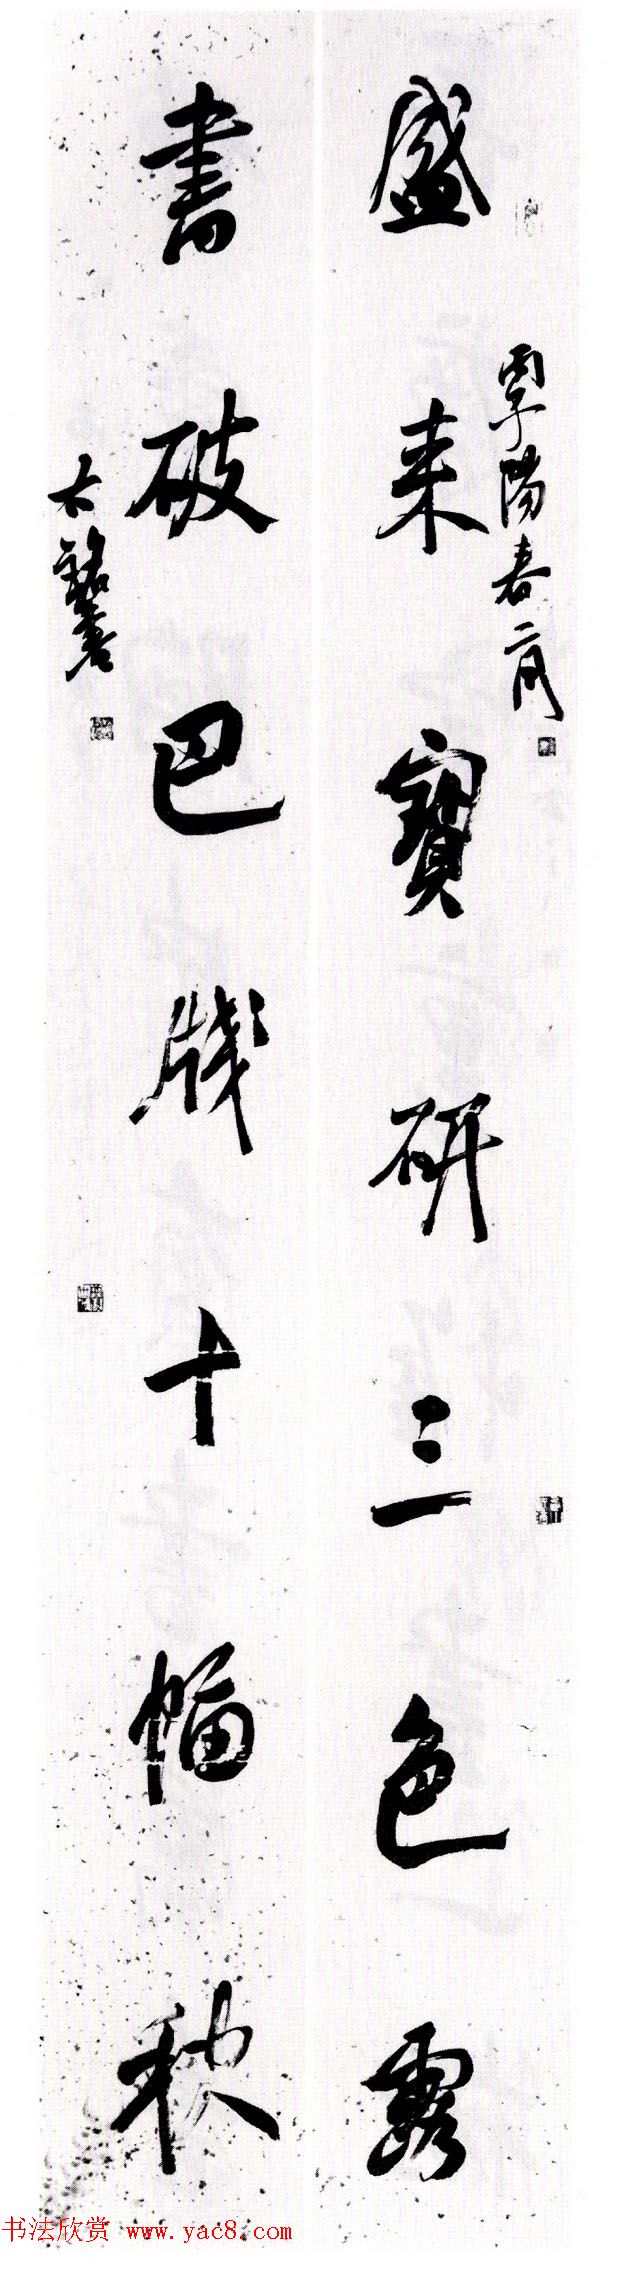 盛来寶研三色露
書破巴牋十幅秋
覃陽春二月
大銘書
书法欣赏 www.yac8.com